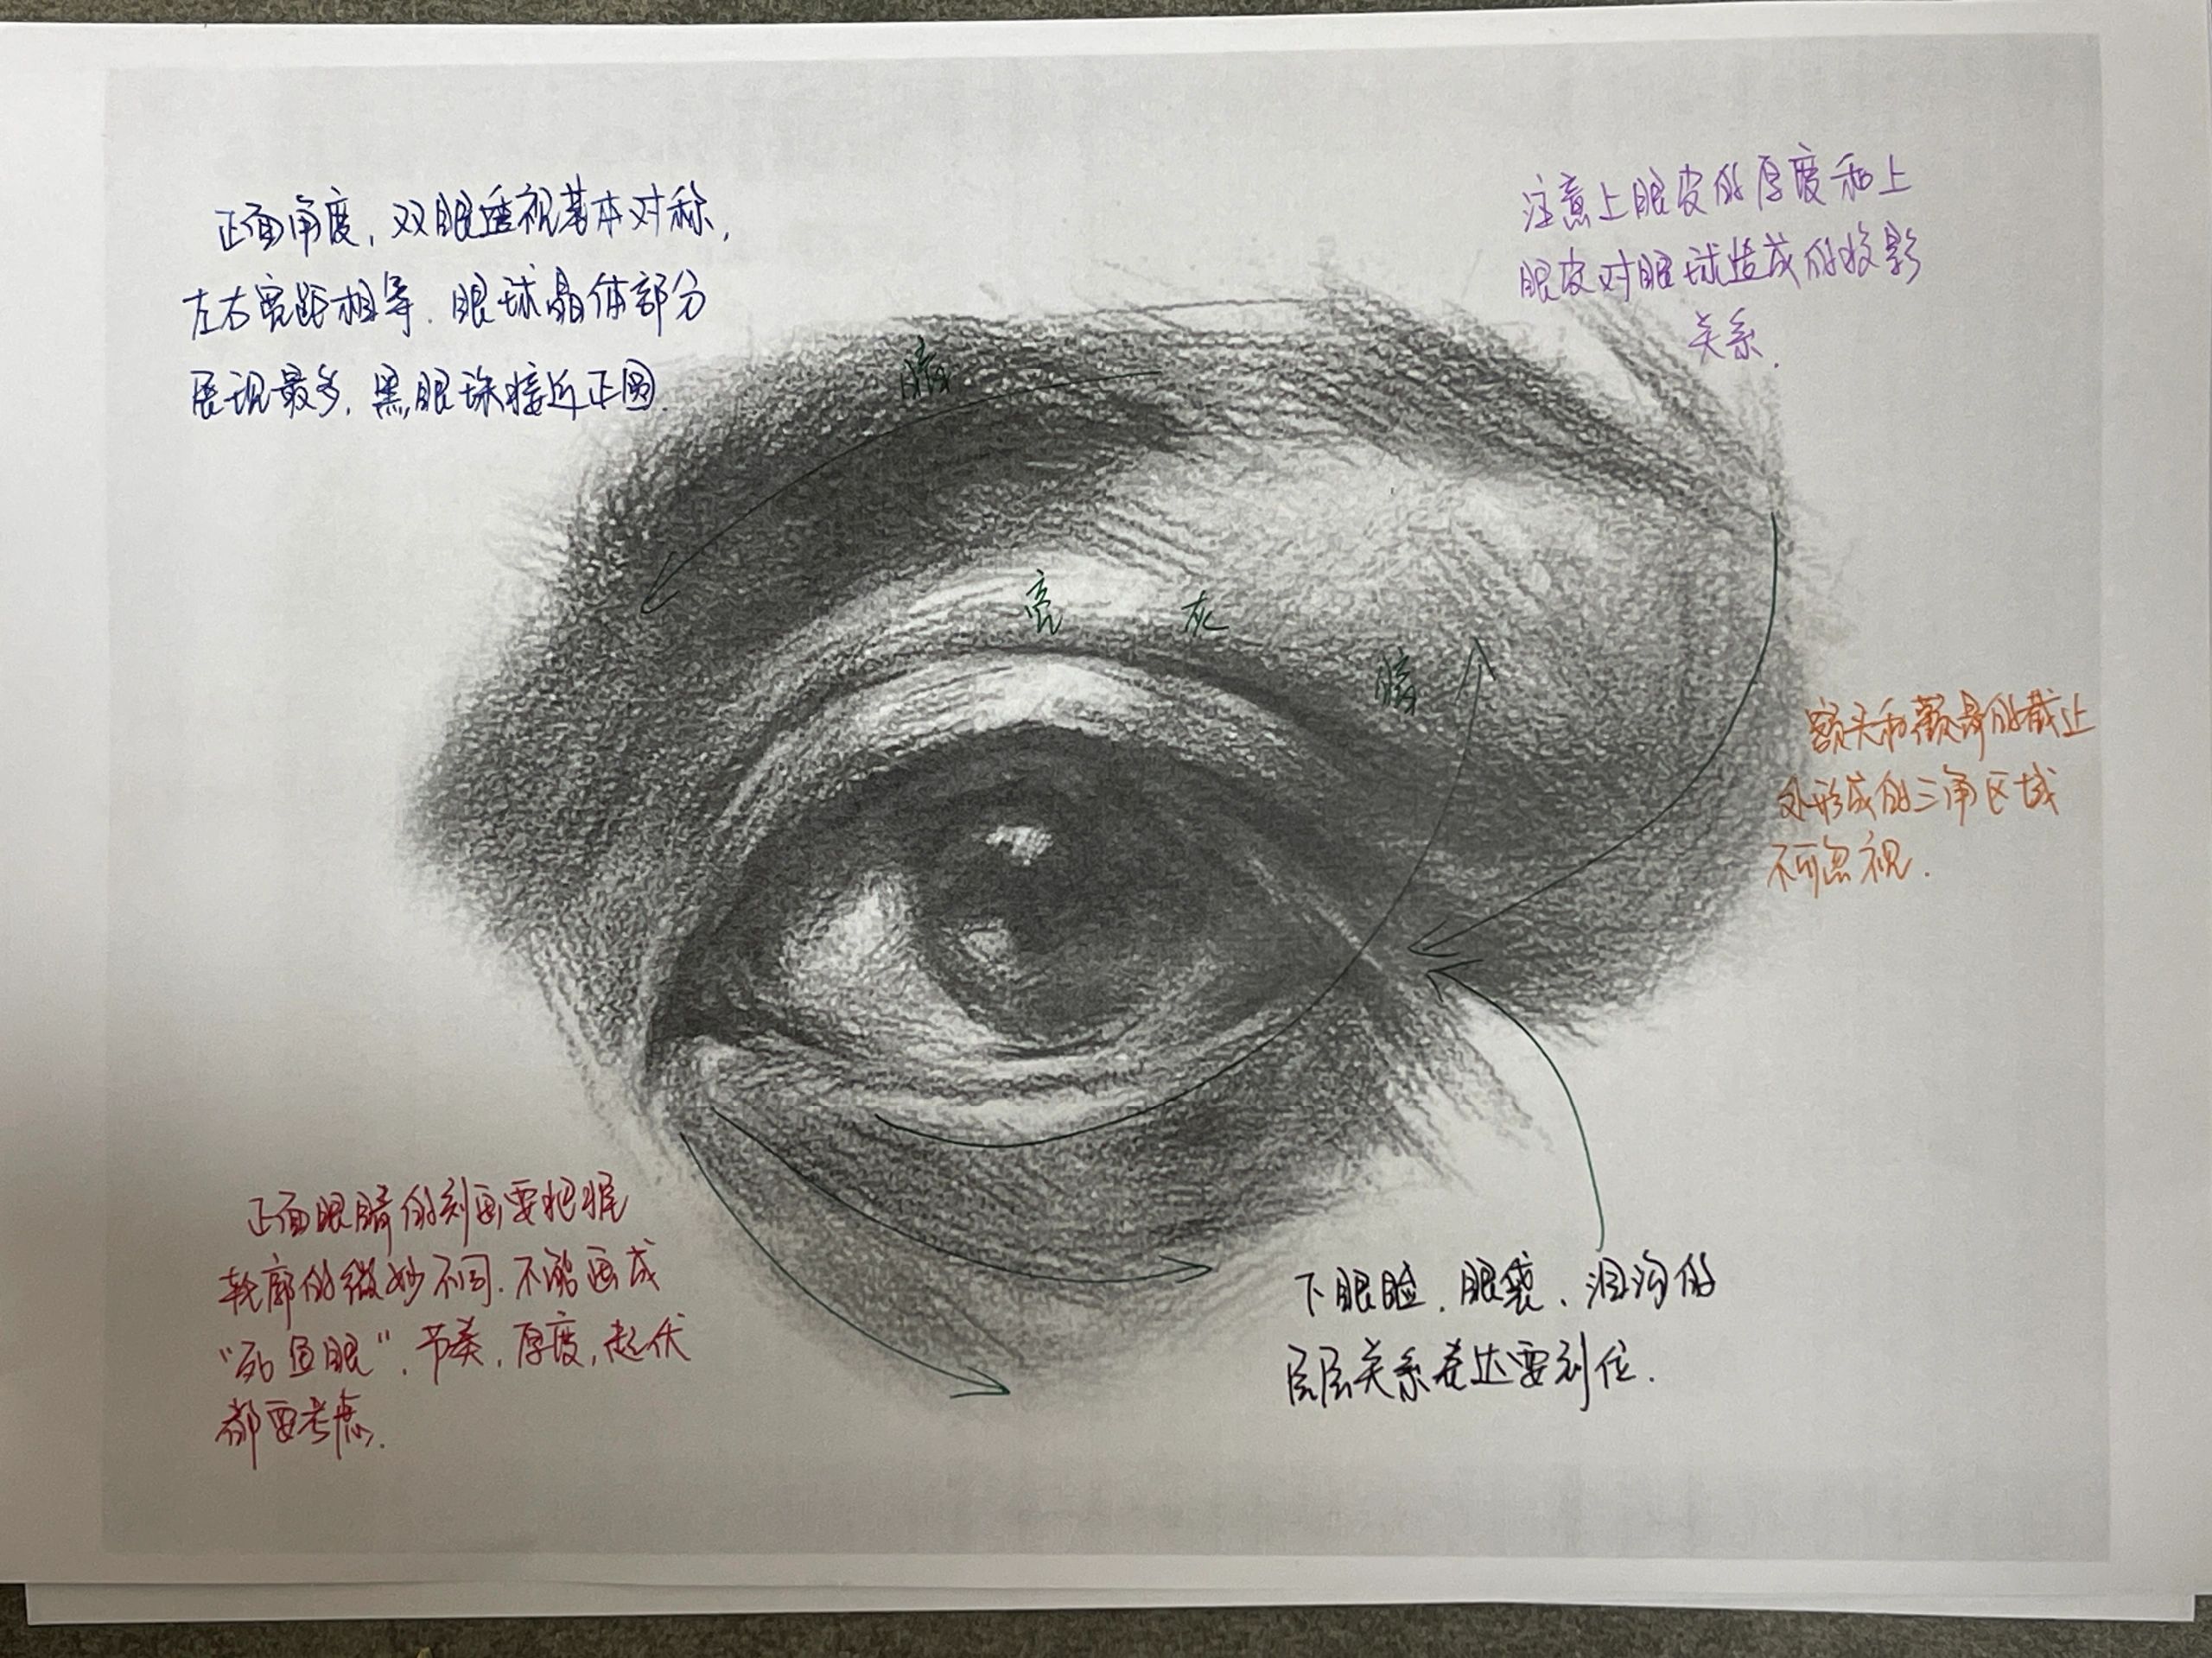 正面角度,双眼透视基本对称,
左右宽距相等.眼球晶体部分
展现最多,黑眼珠接近正圆.
注意上眼皮的厚度和上
眼皮对眼球造成的投影
关系.
暗
亮
灰
暗
额头和颧骨的截止
处形成的三角区域
不可忽视.
正面眼睛的刻画要把握
轮廓的微妙不同.不能画成
“死鱼眼”,节奏,厚度,起伏
都要考虑.
下眼睑、眼袋、泪沟的
层层关系表达要到位.